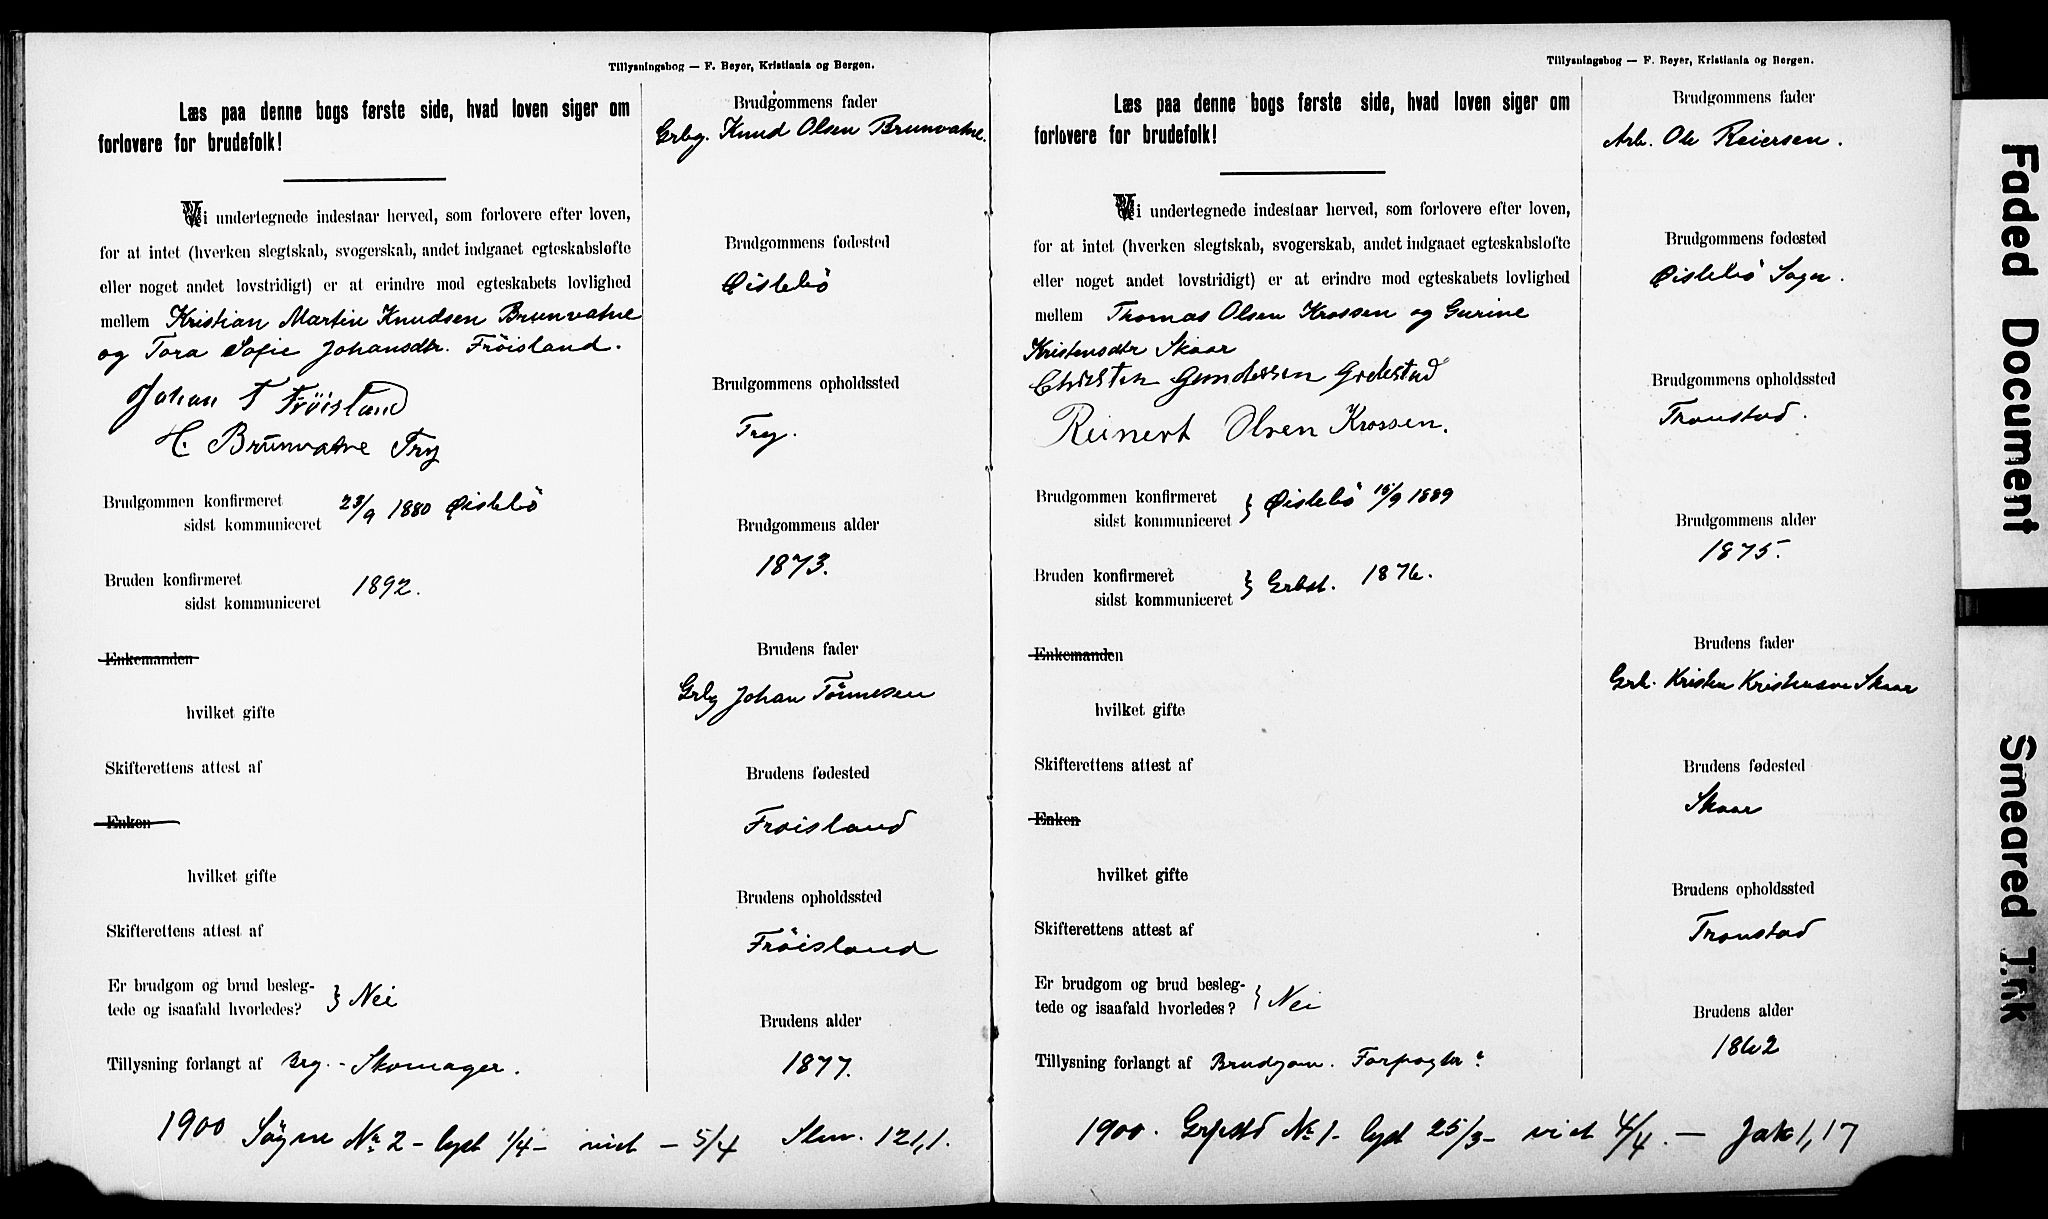 Tillysningsbog — F. Beyer, Kristiania og Bergen.
Læs paa denne bogs første side, hvad loven siger om
forlovere for brudefolk!
Vi undertegnede indestaar herved, som forlovere efter loven,
for at intet (hverken slegtskab, svogerskab, andet indgaaet egteskabsløfte
eller noget andet lovstridigt) er at erindre mod egteskabets lovlighed
mellem Kristian Martin Knudsen Brunvatne
og Tora Sofie Johansdtr. Fröisland.
Johan T Fröisland
H. Brunvatne Try
Brudgommen konfirmeret
sidst kommuniceret 23/9 1880 Øislebö
Bruden konfirmeret
sidst kommuniceret 1892.
Enkemanden
hvilket gifte
Skifterettens attest af
Enken
hvilket gifte
Skifterettens attest af
Er brudgom og brud besleg-
tede og isaafald hvorledes? } Nei
Tillysning forlangt af Brg. - Skomager.
Brudgommens fader
Grbg. Knud Olsen Brunvatne.
Brudgommens fødested
Øislebö
Brudgommens opholdssted
Try.
Brudgommens alder
1873.
Brudens fader
Grbg Johan Tönnesen
Brudens fødested
Froisland
Brudens opholdssted
Fröisland
Brudens alder
1877.
1900 Sögne No 2 - lyst 1/4 - viet - 5/4 Slm. 121,1.
Tillysningsbog — F. Beyer, Kristiania og Bergen.
Læs paa denne bogs første side, hvad loven siger om
forlovere for brudefolk!
Vi undertegnede indestaar herved, som forlovere efter loven,
for at intet (hverken slegtskab, svogerskab, andet indgaaet egteskabsløfte
eller noget andet lovstridigt) er at erindre mod egteskabets lovlighed
mellem Thomas Olsen Krossen og Gurine
Kristensdtr Skaar
Christen Gundersen
Reinert Olsen Krossen.
Brudgommen konfirmeret
sidst kommuniceret } Øislebö 15/9 1889
Bruden konfirmeret
sidst kommuniceret } 1876.
Enkemanden
hvilket gifte
Skifterettens attest af
Enken
hvilket gifte
Skifterettens attest af
Er brudgom og brud besleg-
tede og isaafald hvorledes? } Nei
Tillysning forlangt af Brudgom. Forpagter
Brudgommens fader
Arb. Ole Reiersen.
Brudgommens fødested
Øislebö Sogn.
Brudgommens opholdssted
Tronstad.
Brudgommens alder
1875.
Brudens fader
Grb. Kristen Kristensen Skaar
Brudens fødested
Skaar
Brudens opholdssted
Tronstad
Brudens alder
1862
1900. No 1 - lyst 25/3 - viet 4/4. — Jak 1,17
Faded Document
Smeared Ink